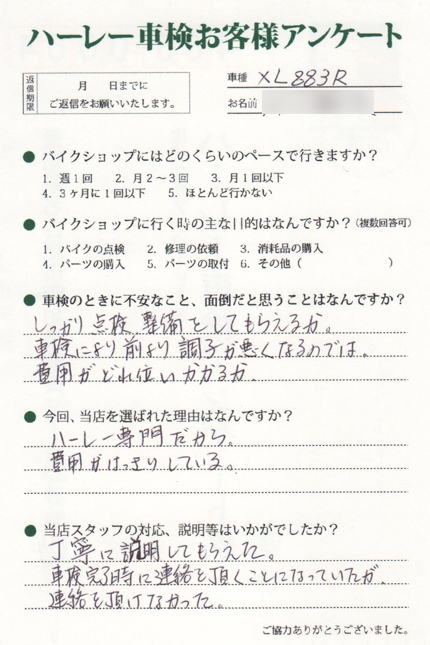 ハーレー車検お客様アンケート
返信期限
月 日までに
ご返信をお願いいたします。
車種 XL883R
お名前
● バイクショップにはどのくらいのペースで行きますか？
1. 週1回 2. 月2～3回 3. 月1回以下
4. 3ヶ月に1回以下 5. ほとんど行かない
● バイクショップに行く時の主な目的はなんですか？(複数回答可)
1. バイクの点検 2. 修理の依頼 3. 消耗品の購入
4. パーツの購入 5. パーツの取付 6. その他 ( )
● 車検のときに不安なこと、面倒だと思うことはなんですか？
しっかり点検、整備をしてもらえるか。
車検により前より調子が悪くなるのでは。
費用がどれ位いかかるか。
● 今回、当店を選ばれた理由はなんですか？
ハーレー専門だから。
費用がはっきりしている。
● 当店スタッフの対応、説明等はいかがでしたか？
丁寧に説明してもらえた。
車検完了時に連絡を頂くことになっていたが、
連絡を頂けなかった。
ご協力ありがとうございました。